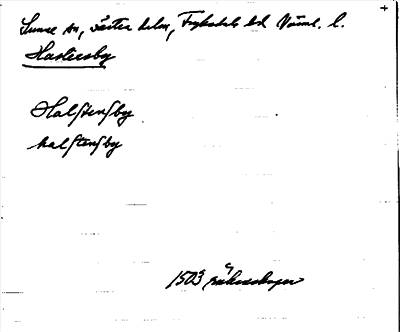 Sunne sn, västra delen, Fryksdals hd Värml. l.
Hastersby
Halſtenſby
halſtenſby
1503 räkenskaper